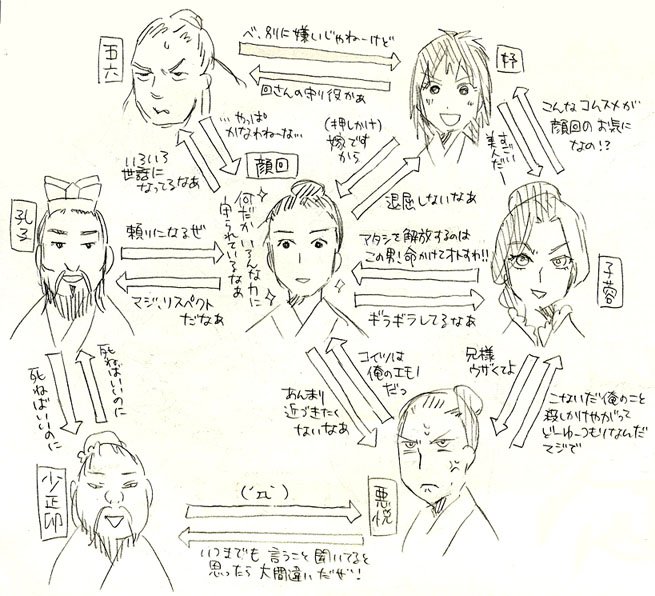 べ、別に嫌いじゃねーけど
五六
好
回さんの守り役かぁ
こんなコムスメが
顔回のお気に
なの!?
すごい
美人だー
…やっぱ
かなわねーな…
(押しかけ)
嫁です
から
いろいろ
世話に
なってるなあ
顔回
退屈しないなぁ
孔子
頼りになるぜ
何だかいろんな力に
守られているなあ
アタシを解放するのは
この男!命かけてオトすわ!!
子蓉
マジ、リスペクト
だなぁ
ギラギラしてるなぁ
死ねばいいのに
死ねばいいのに
コイツは
俺のエモノ
だっ
兄様
ウザくてよ
あんまり
近づきたく
ないなぁ
こないだ俺のこと
殺しかけやがって
どーゆーつもりなんだ
マジで
少正卯
悪悦
(´ェ`)
いつまでも言うこと聞いてると
思ったら大間違いだぜ!